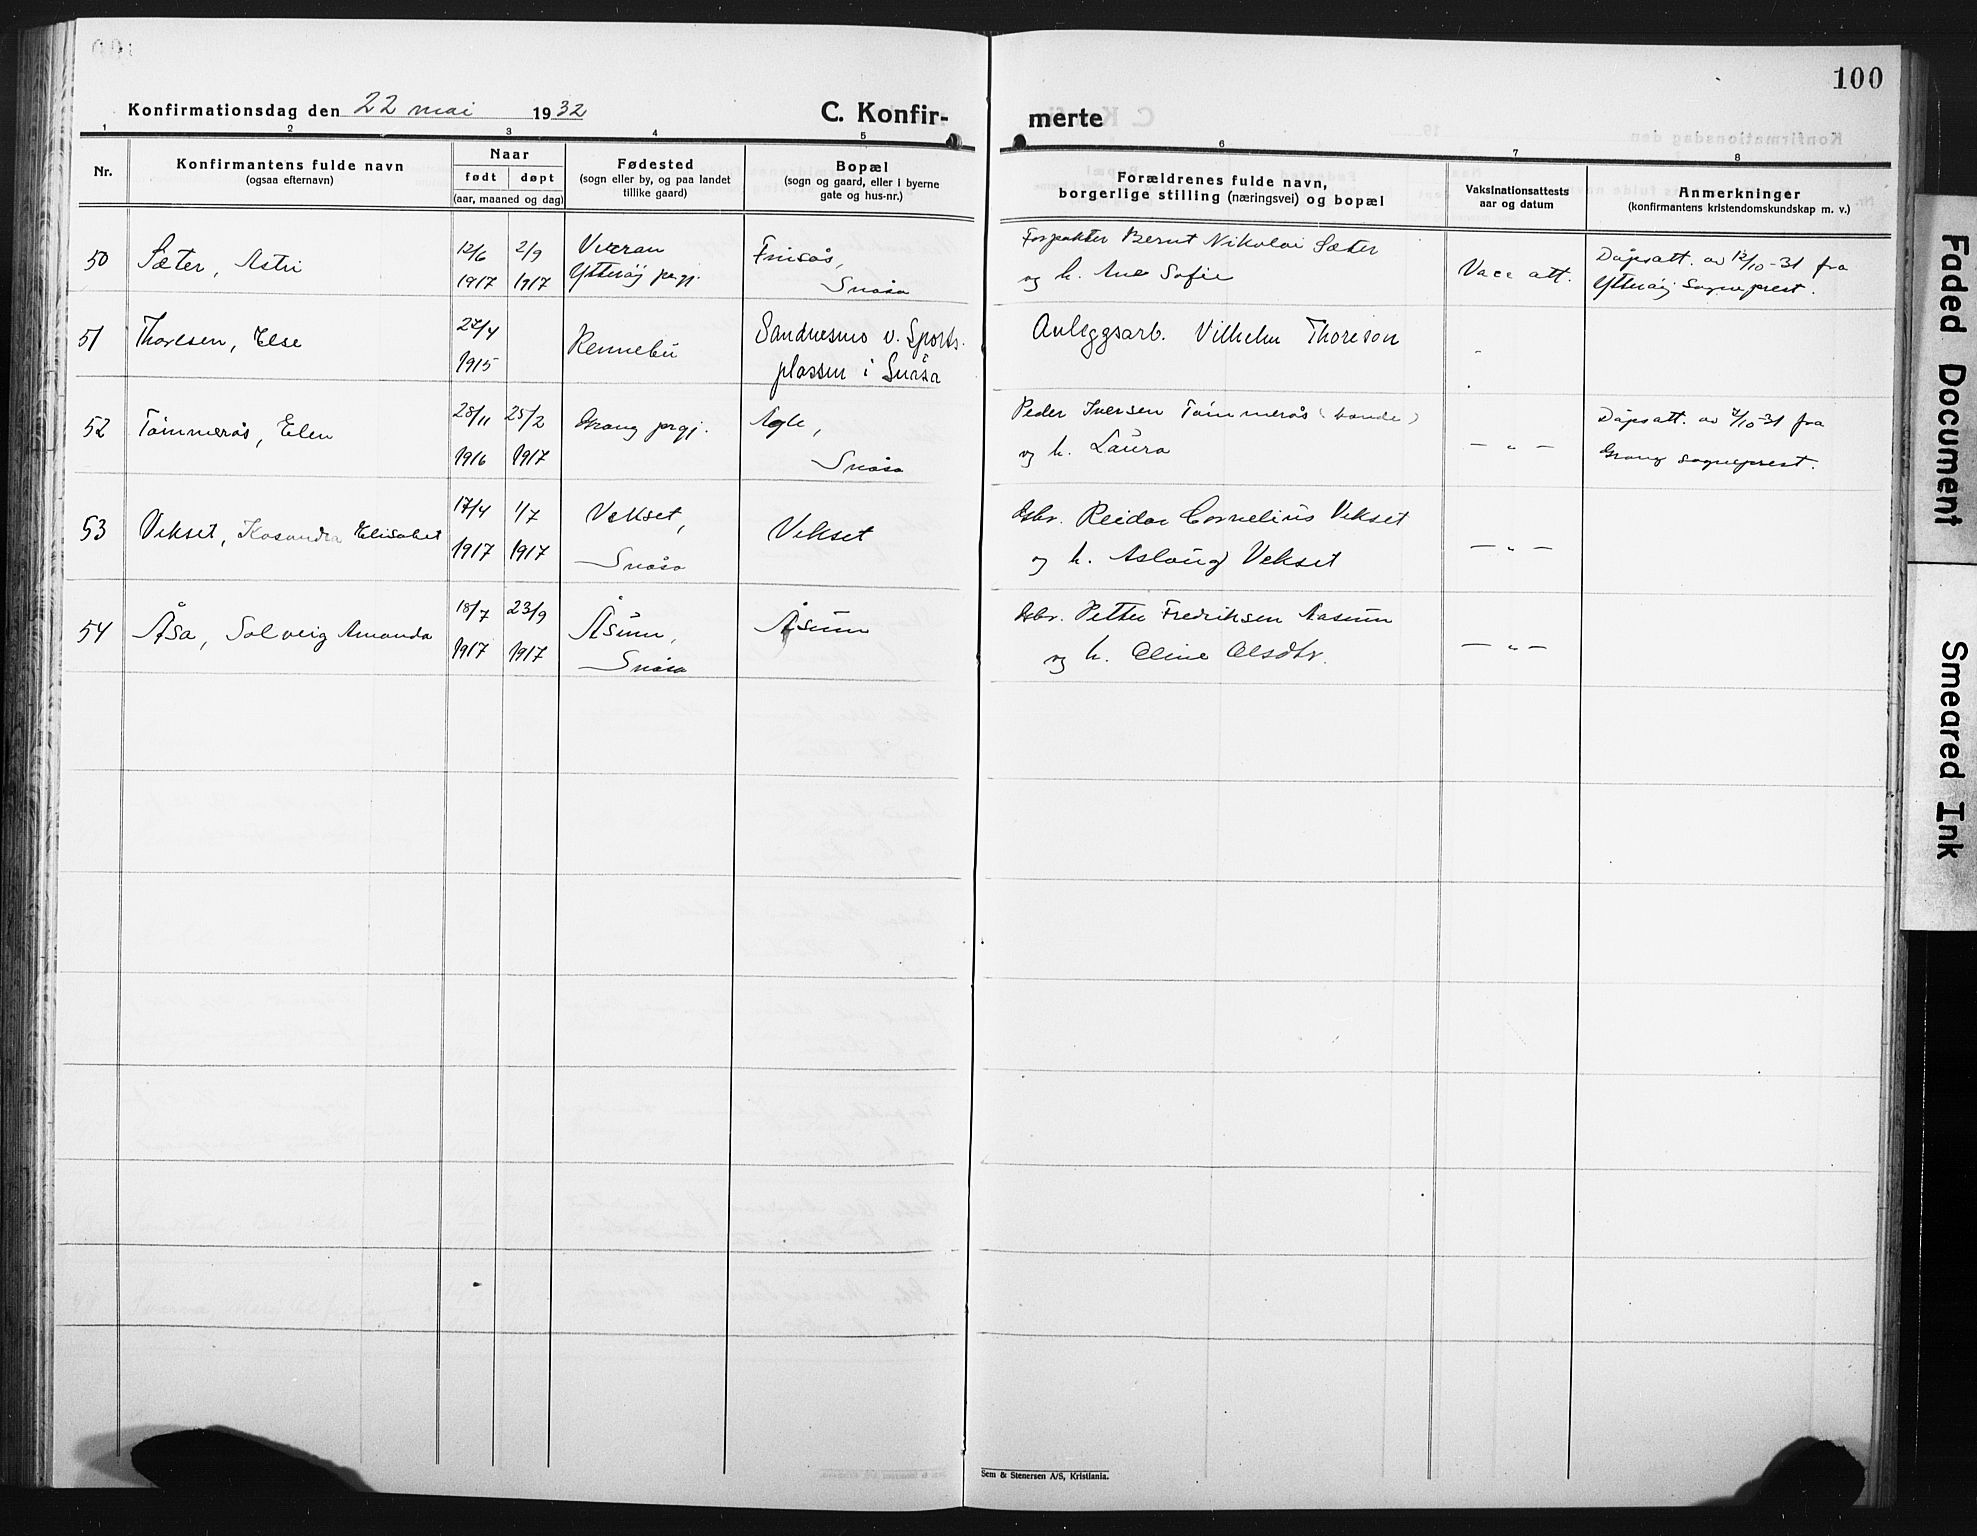 100
Konfirmationsdag den 22 mai 1932
C. Konfir-
merte
1 2 3 4 5 6 7 8
Nr.
Konfirmantens fulde navn
(ogsaa efternavn)
Naar
født døpt
(aar, maaned og dag)
Fødested
(sogn eller by, og paa landet
tillike gaard)
Bopæl
(sogn og gaard, eller i byerne
gate og hus-nr.)
Forældrenes fulde navn,
borgerlige stilling (næringsvei) og bopæl
Vaksinationsattests
aar og datum
Anmerkninger
(konfirmantens kristendomskundskap m. v.)
50 Sæter, Astri
12/6 1917
2/9 1917
Verran
Ytterøy prgj.
Finsås,
Snåsa
Forpakter Bernt Nikolai Sæter
og h. Ane Sofie
Vacc att.
Dåpsatt. av 12/10-31 fra
Ytterøy Sogneprest.
51 Thoresen, Else
27/4 1915
Rennebu
Sandnesmo v. Sports-
plassen i Snåsa
Anleggsarb. Vilhelm Thoreson
52 Tømmerås, Elen
28/11 1916
25/2 1917
Grong prgj.
Agle,
Snåsa
Peder Iversen Tømmerås (bonde)
og h. Laura
— " —
Dåpsatt. av 7/10-31 fra
Grong sogneprest.
53 Vekset, Kasandra Elisabet
17/4 1917
1/7 1917
Vekset,
Snåsa
Vekset
Gbr. Reidar Cornelius Vekset
og h. Aslaug Vekset
— " —
54 Åsa, Solveig Amanda
18/7 1917
23/9 1917
Åsum,
Snåsa
Åsum
Gbr. Petter Fredriksen Aasum
og h. Oline Olsdtr.
— " —
Sem & Stenersen A/S, Kristiania.
Faded Document
Smeared Ink